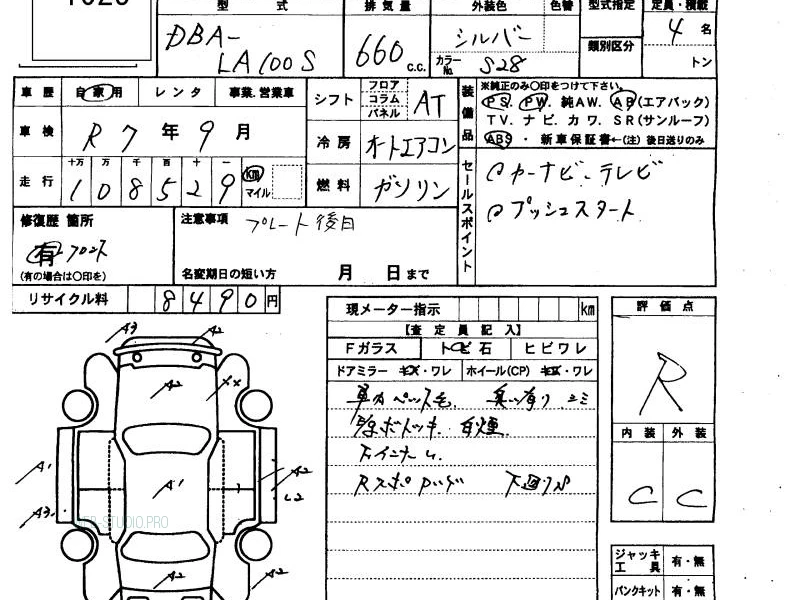 型 式 排気量 外装色 色替 型式指定 定員・積載
DBA-
LA100S
660 c.c.
シルバー
カラーNo. S28
類別区分
4 名
トン
車歴 自家用 レンタ 事業.営業車
シフト フロア コラム パネル AT
装備品
※純正のみ〇印をつけて下さい。
PS. PW. 純AW. AB(エアバッグ)
TV. ナビ. カワ. SR(サンルーフ)
ABS ・ 新車保証書←(注) 後日送りのみ
車検 R7年9月
冷房 オートエアコン
走行 十万 万 千 百 十 一
108529 km マイル
燃料 ガソリン
セールスポイント
カーナビ、テレビ
プッシュスタート
修復歴 箇所
有 フロント
(有の場合は〇印を)
注意事項 プレート後日
名変期日の短い方 月 日まで
リサイクル料 8490円
現メーター指示 km
【査定員記入】
Fガラス トビ石 ヒビワレ
ドアミラー キズ・ワレ ホイール(CP) キズ・ワレ
車内ペット毛. 臭い有り シミ
白煙.
下回りサビ
評価点
R
内装 外装
C C
ジャッキ 工具 有・無
パンクキット 有・無
A3
A2
A2
XX
A1
A1
A2
L2
A3.
A2
A2
WEB-STUDIO.PRO